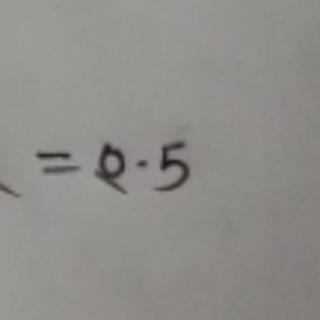 = 0.5